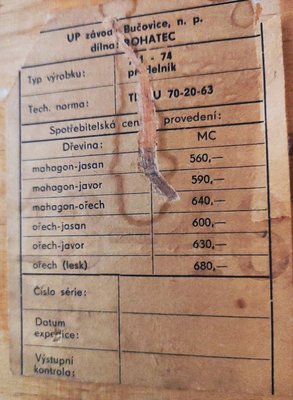 UP závod Bučovice, n. p.
dílna: ROHATEC
Typ výrobku: - 74
Tech. norma: U 70-20-63
Spotřebitelská provedení:
Dřevina: MC
mahagon-jasan 560,—
mahagon-javor 590,—
mahagon-ořech 640,—
ořech-jasan 600,—
ořech-javor 630,—
ořech (lesk) 680,—
Číslo série:
Datum
expedice:
Výstupní
kontrola: